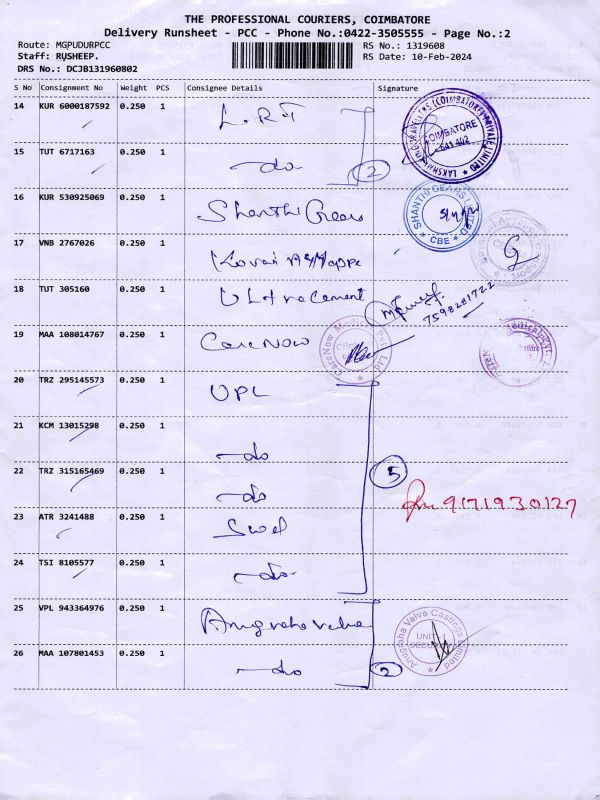 THE PROFESSIONAL COURIERS, COIMBATORE
Delivery Runsheet - PCC - Phone No.:0422-3505555 - Page No.:2
Route: MGPUDURPCC
RS No.: 1319608
Staff: RUSHEEP.
RS Date: 10-Feb-2024
DRS No.: DCJB131960802
S No Consignment No Weight PCS Consignee Details Signature
14 KUR 6000187592 0.250 1 L.R.T
15 TUT 6717163 0.250 1 -do 2
COIMBATORE
641 402
16 KUR 530925069 0.250 1 Shanthi Gears
SHANTHI GEARS LIMITED
* CBE *
17 VNB 2767026 0.250 1 Kovai
18 TUT 305160 0.250 1 Ultracement
7598281722
19 MAA 108014767 0.250 1 CareNow
CareNow Medical Pvt. Ltd
20 TRZ 295145573 0.250 1 UPL
21 KCM 13015298 0.250 1 -do
22 TRZ 315165469 0.250 1 -do 5
9171930127
23 ATR 3241488 0.250 1
24 TSI 8105577 0.250 1 -do-
25 VPL 943364976 0.250 1 Anugraha Valve
Anugraha Valve Castings Limited
UNIT-I
SECURITY
26 MAA 107801453 0.250 1 -do 2